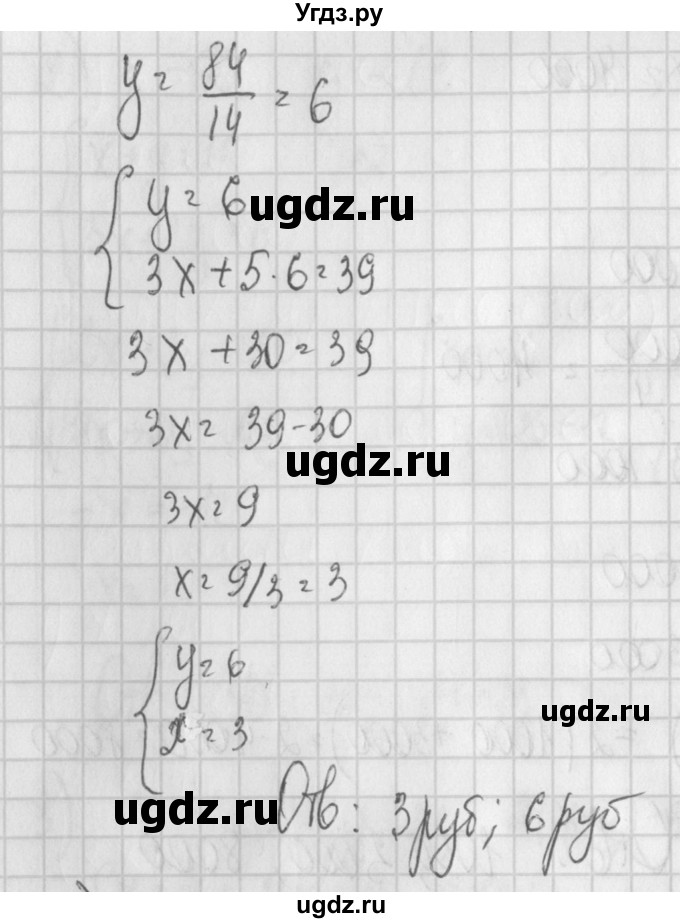 Угдз.ру
y = 84/14 = 6
{ y = 6
ugdz.ru
3x + 5 · 6 = 39
3x + 30 = 39
3x = 39 - 30
ugdz.ru
3x = 9
x = 9/3 = 3
{ y = 6
x = 3
ugdz.ru
ugdz.ru
Отв: 3 руб; 6 руб
ugdz.ru